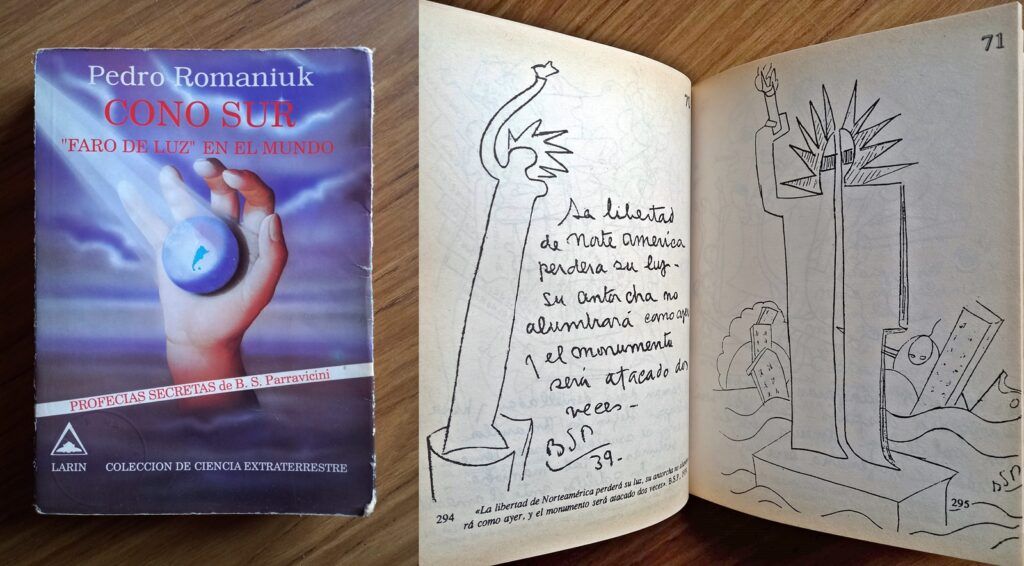 Pedro Romaniuk
CONO SUR
"FARO DE LUZ" EN EL MUNDO
PROFECIAS SECRETAS de B. S. Parravicini
LARIN
COLECCION DE CIENCIA EXTRATERRESTRE
La libertad
de Norte america
perdera su luz-
su antorcha no
alumbrará como ayer
y el monumento
será atacado dos
veces-
BSP
39-
294
«La libertad de Norteamérica perderá su luz, su antorcha no
rá como ayer, y el monumento será atacado dos veces». B.S.P.
71
BSP
295